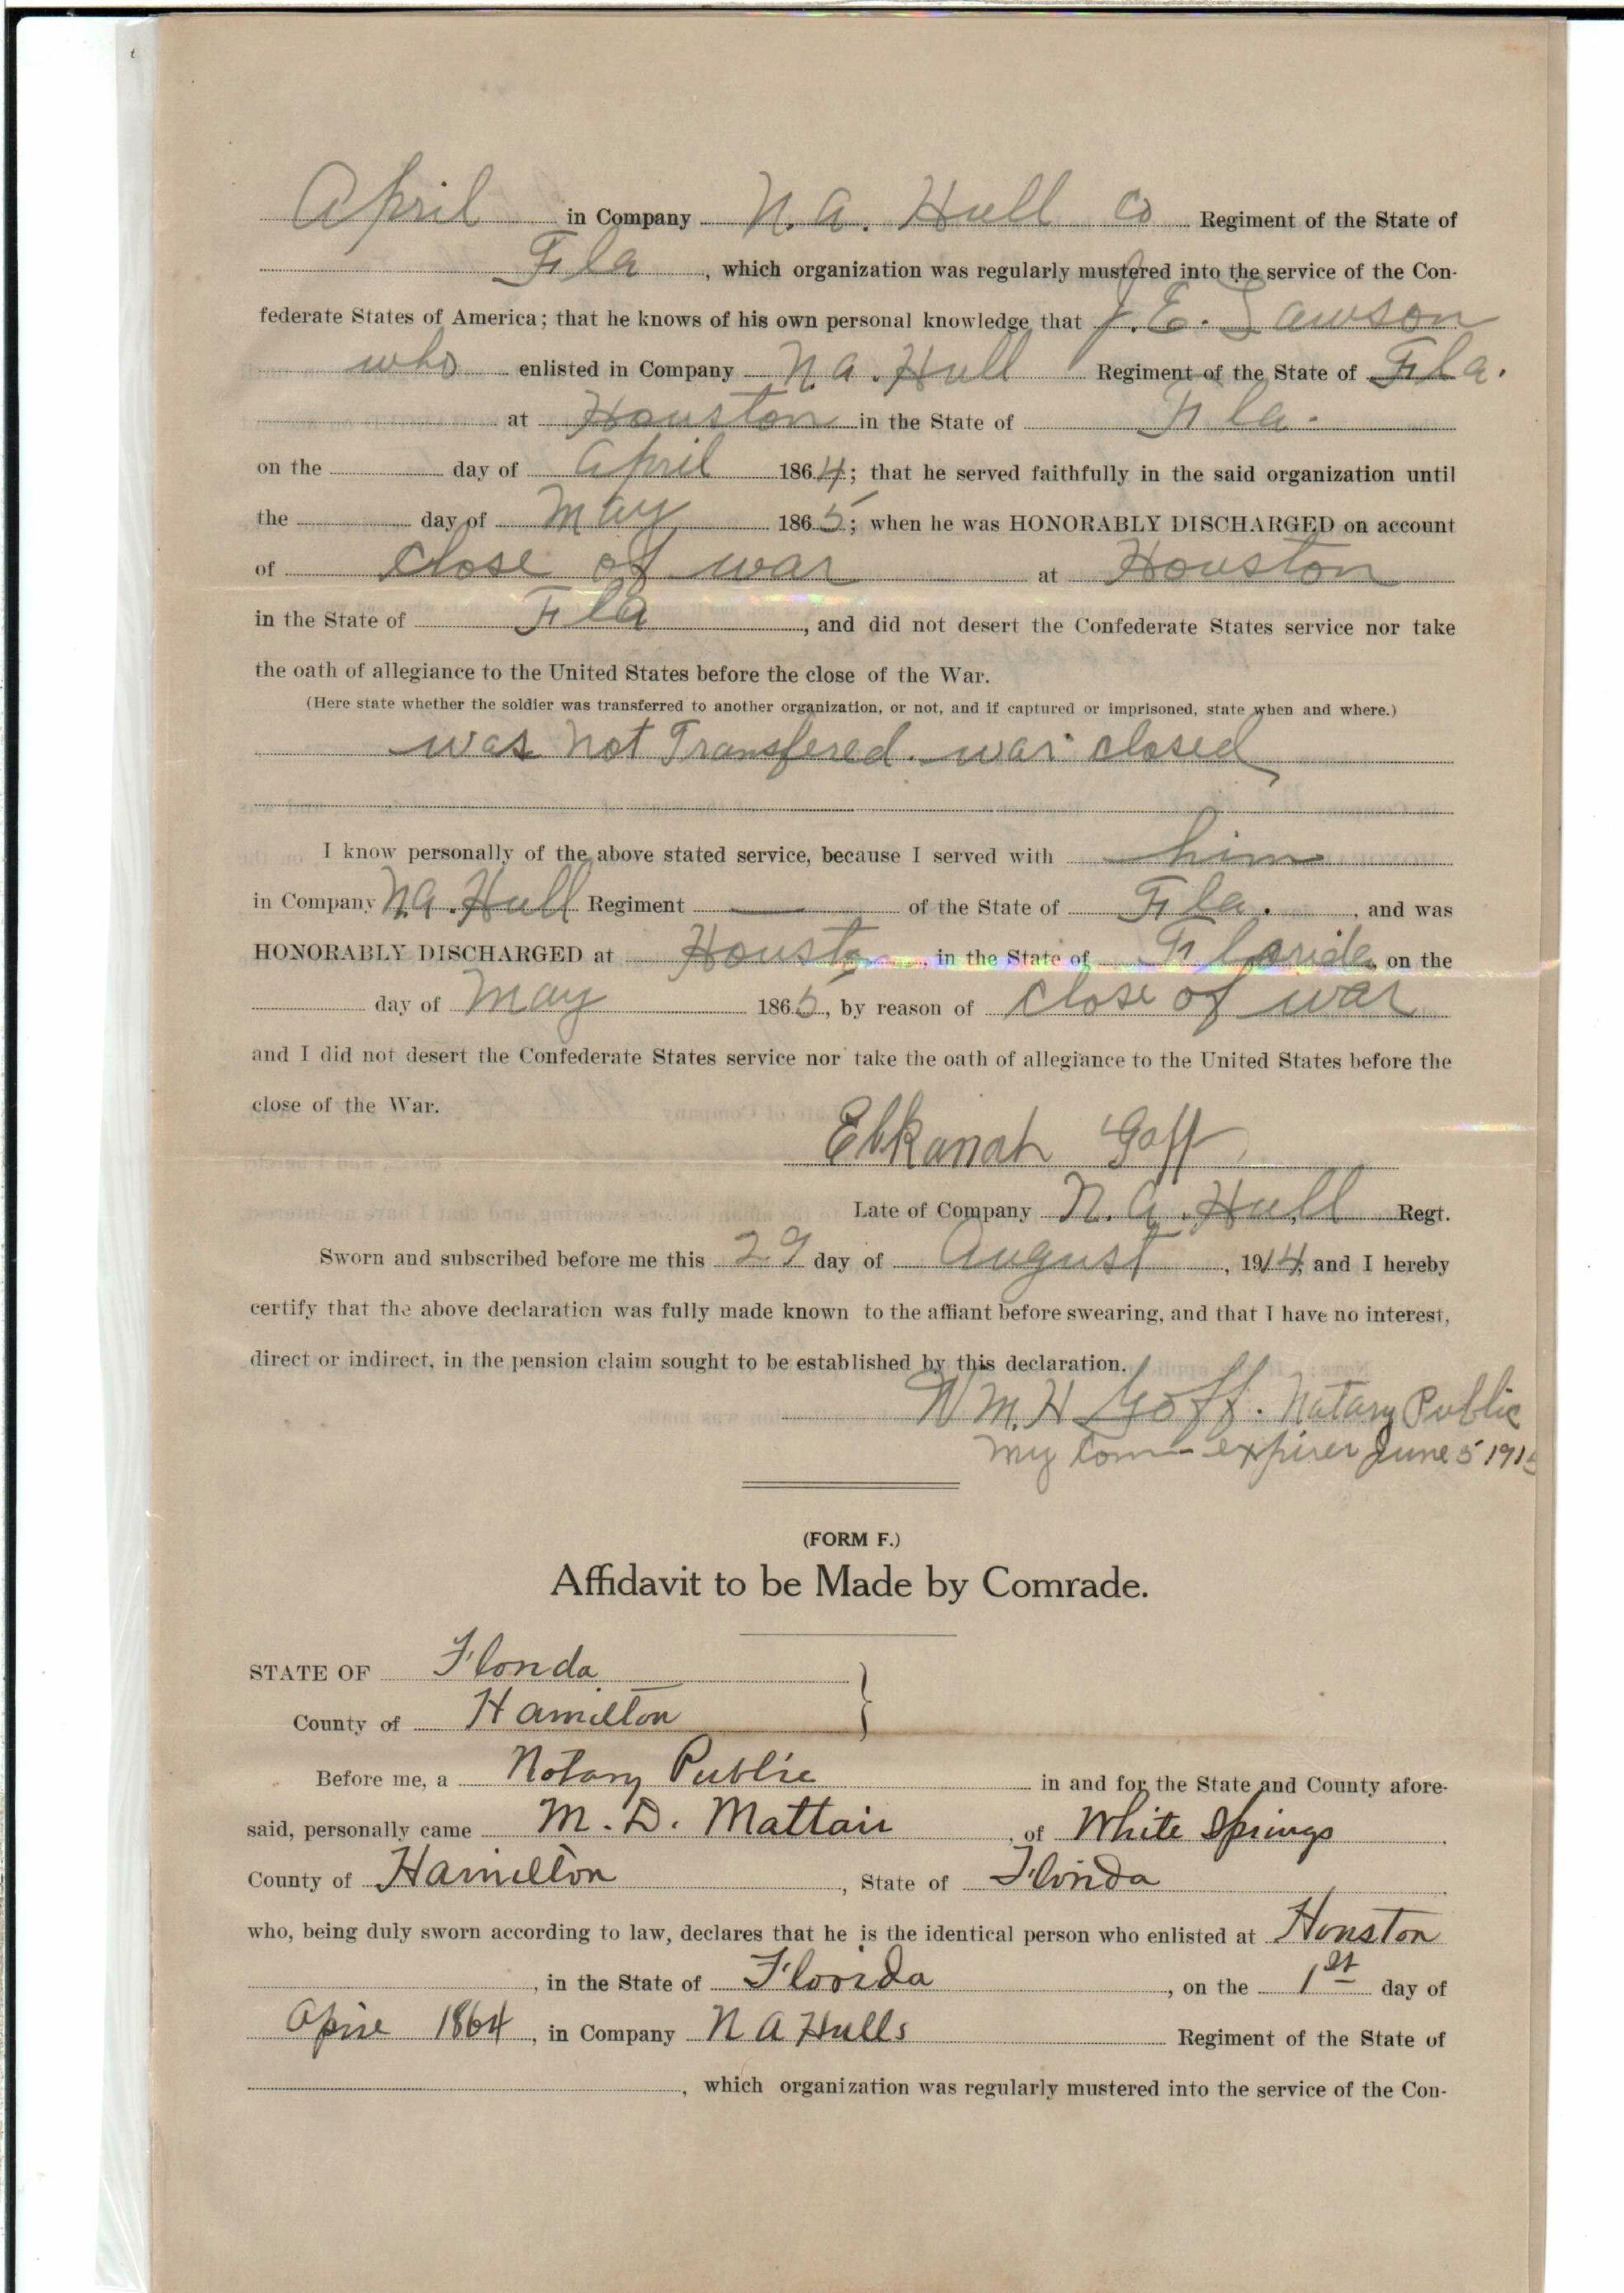 April in Company N. A. Hull Co Regiment of the State of
Fla, which organization was regularly mustered into the service of the Con-
federate States of America; that he knows of his own personal knowledge that J. E. Lawson
who enlisted in Company N. A. Hull Regiment of the State of Fla.
at Houston in the State of Fla.
on the day of April 1864; that he served faithfully in the said organization until
the day of May 1865; when he was HONORABLY DISCHARGED on account
of Close of war at Houston
in the State of Fla, and did not desert the Confederate States service nor take
the oath of allegiance to the United States before the close of the War.
(Here state whether the soldier was transferred to another organization, or not, and if captured or imprisoned, state when and where.)
was not Transfered. war closed
I know personally of the above stated service, because I served with him
in Company N. A. Hull Regiment — of the State of Fla., and was
HONORABLY DISCHARGED at Houston, in the State of Florida, on the
day of May 1865, by reason of Close of war
and I did not desert the Confederate States service nor take the oath of allegiance to the United States before the
close of the War.
Elkanah Goff
Late of Company N. A. Hull Regt.
Sworn and subscribed before me this 29 day of August, 1914, and I hereby
certify that the above declaration was fully made known to the affiant before swearing, and that I have no interest,
direct or indirect, in the pension claim sought to be established by this declaration.
Wm. H Goff. Notary Public
My Com- expires June 5 1915
(FORM F.)
Affidavit to be Made by Comrade.
STATE OF Florida
County of Hamilton
Before me, a Notary Public in and for the State and County afore-
said, personally came M. D. Mattair, of White Springs
County of Hamilton, State of Florida
who, being duly sworn according to law, declares that he is the identical person who enlisted at Houston
, in the State of Floorida, on the 1st day of
1864, in Company N A Hulls Regiment of the State of
, which organization was regularly mustered into the service of the Con-